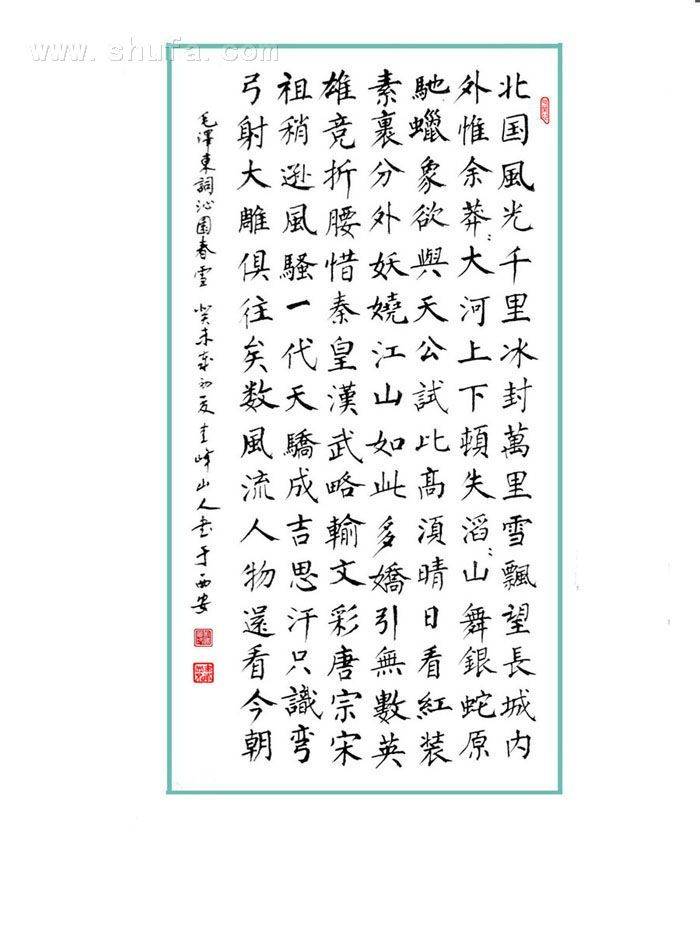 www.shufa.com
北国風光千里冰封萬里雪飄望長城内
外惟余莽〻大河上下頓失滔〻山舞銀蛇原
馳蠟象欲與天公試比高須晴日看紅装
素裹分外妖嬈江山如此多嬌引無數英
雄竞折腰惜秦皇漢武略輸文彩唐宗宋
祖稍逊風騷一代天驕成吉思汗只識弯
弓射大雕俱往矣数風流人物還看今朝
毛澤東詞沁園春雪 癸未年初夏圭峰山人書于西安